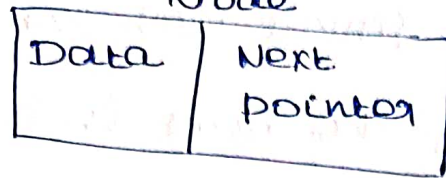 Data
Next
pointer